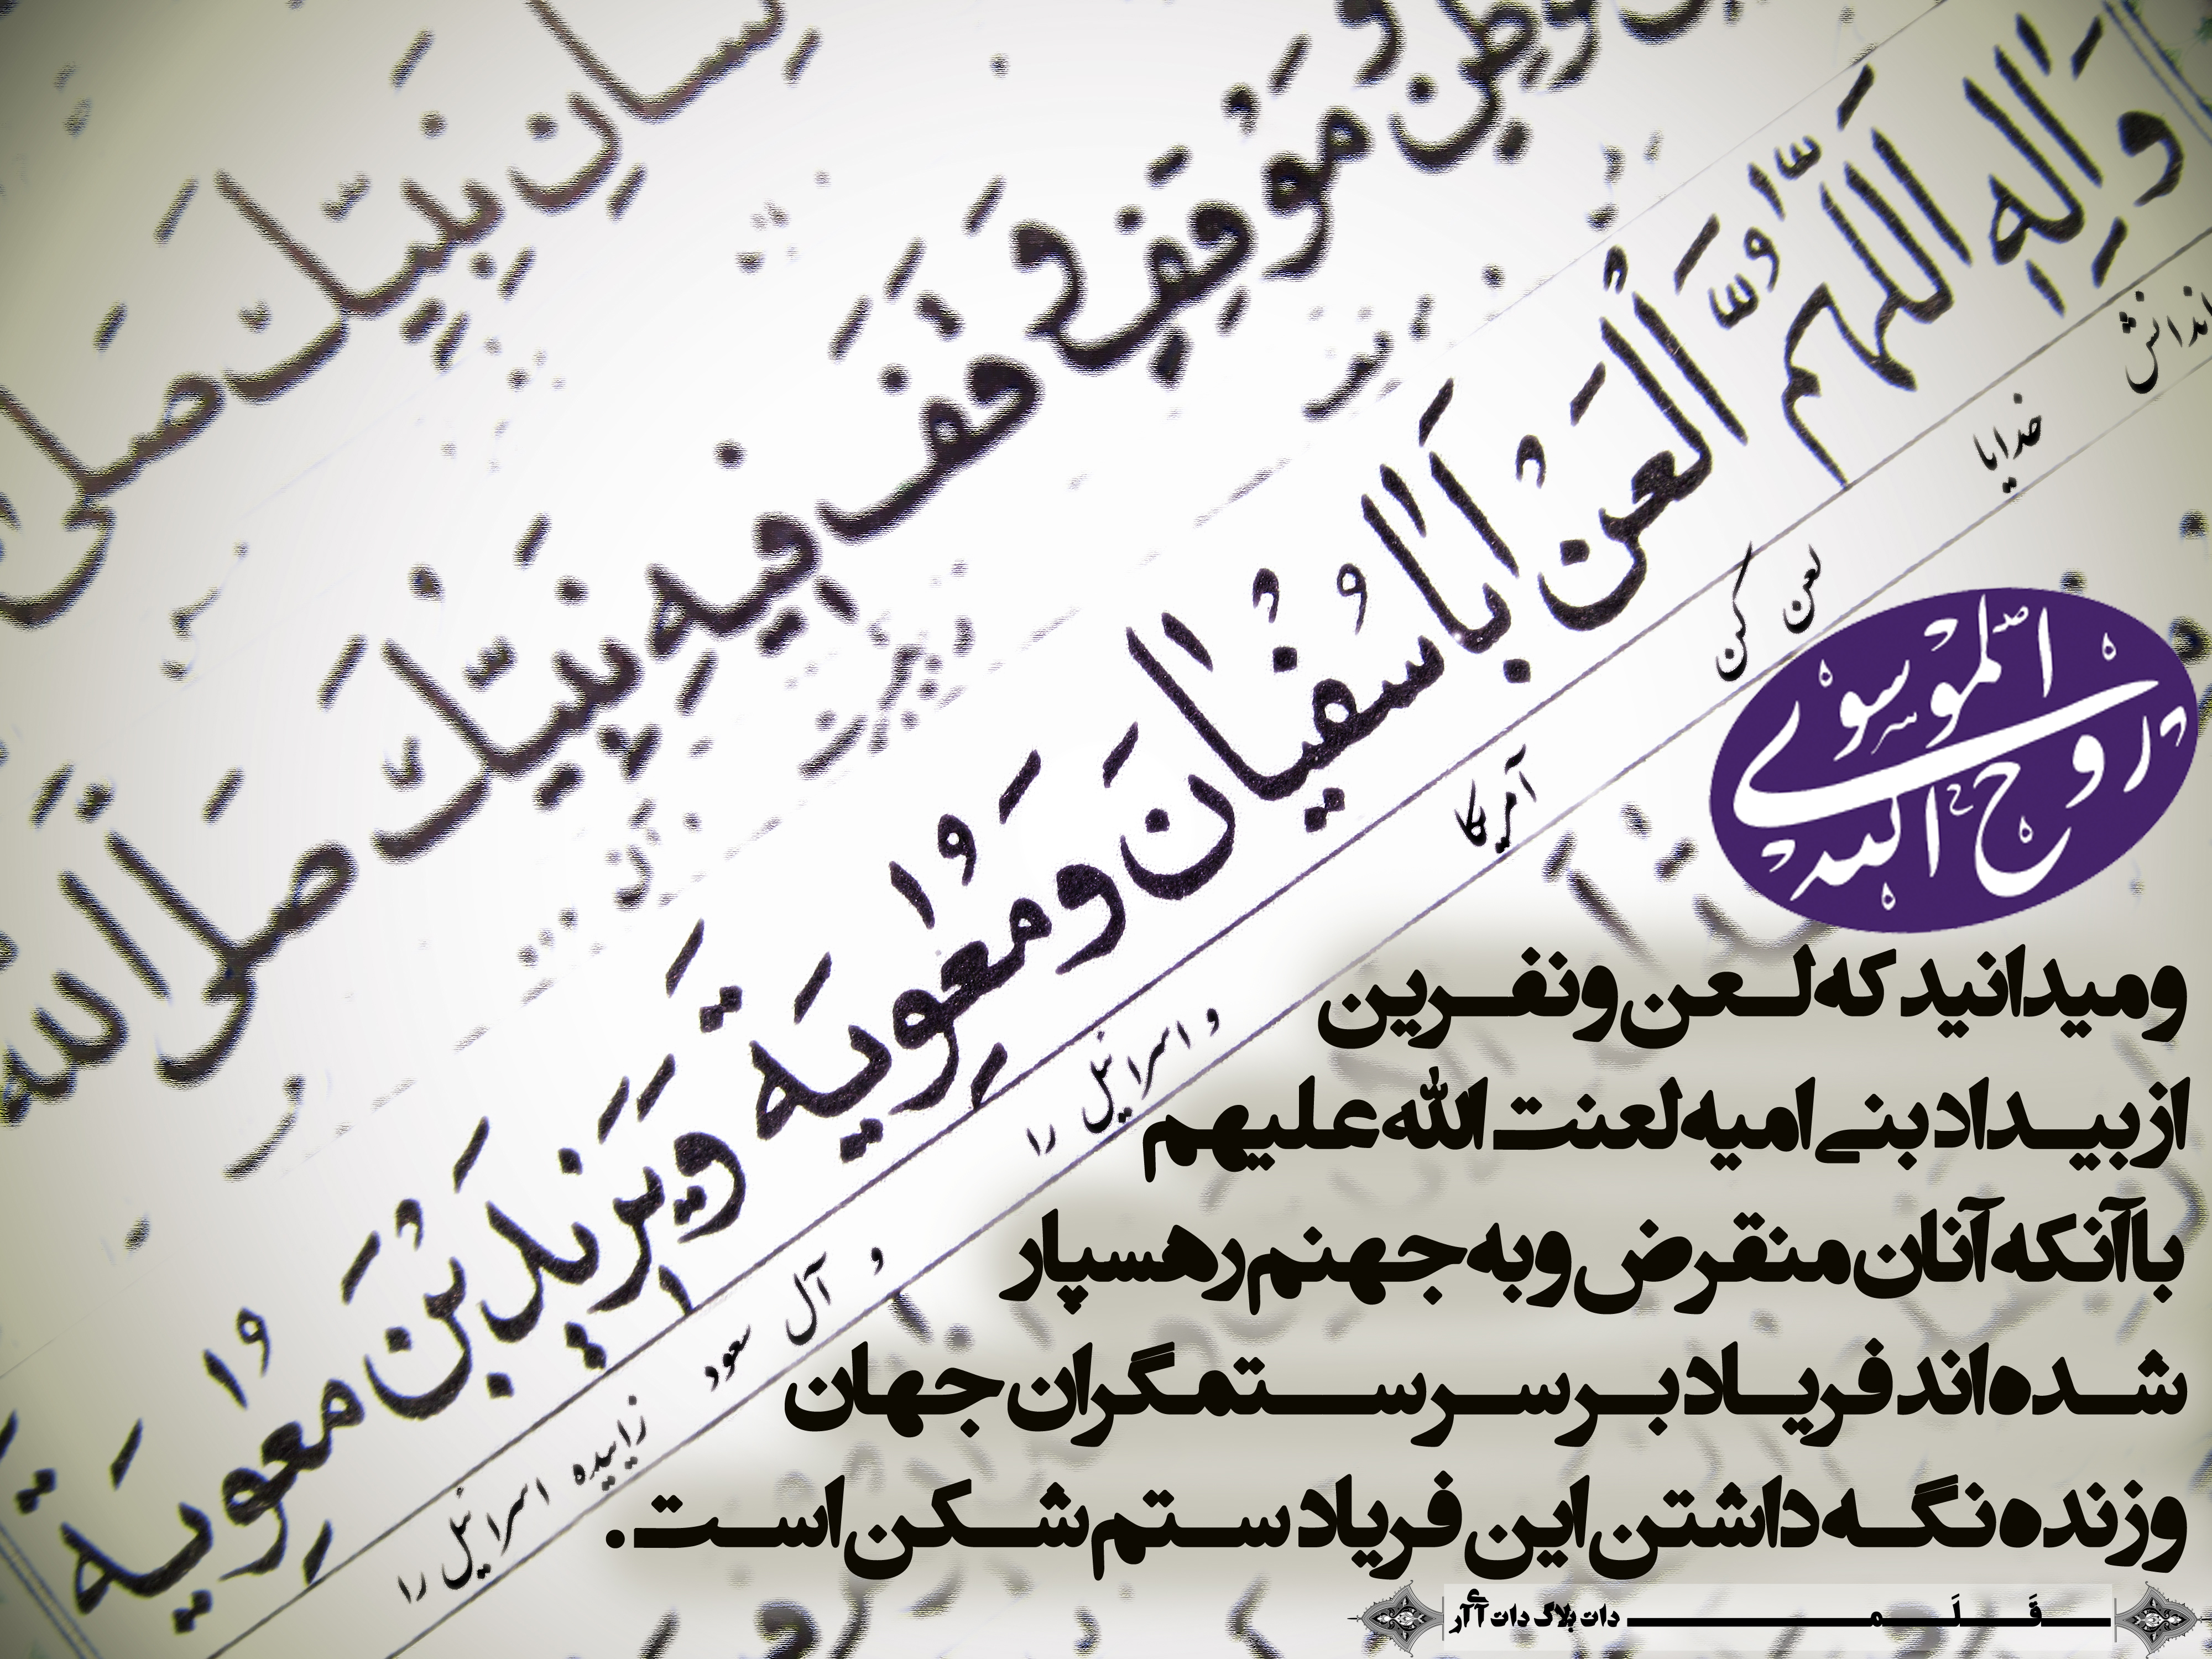 لِسانِ نَبِیِّکَ صَلَّی
مَوْطِنٍ وَمَوْقِفٍ وَقَفَ فیهِ نَبِیُّکَ صَلَّی اللهُ
وَالِهِ اَللّهُمَّ الْعَنْ اَباسُفْیانَ وَمُعوِیَةَ وَیَزیدَ بْنَ مُعوِیَةَ
خدایا لعن کن آمریکا و اسرائیل را و آل سعود زاییده اسرائیل را
الموسوی
روح الله
ومیدانید که لعن ونفرین
ازبیداد بنی امیه لعنت الله علیهم
باآنکه آنان منقرض وبه جهنم رهسپار
شده اند فریاد برسرستمگران جهان
وزنده نگه داشتن این فریاد ستم شکن است.
قَلَم دات بلاگ دات آی آر